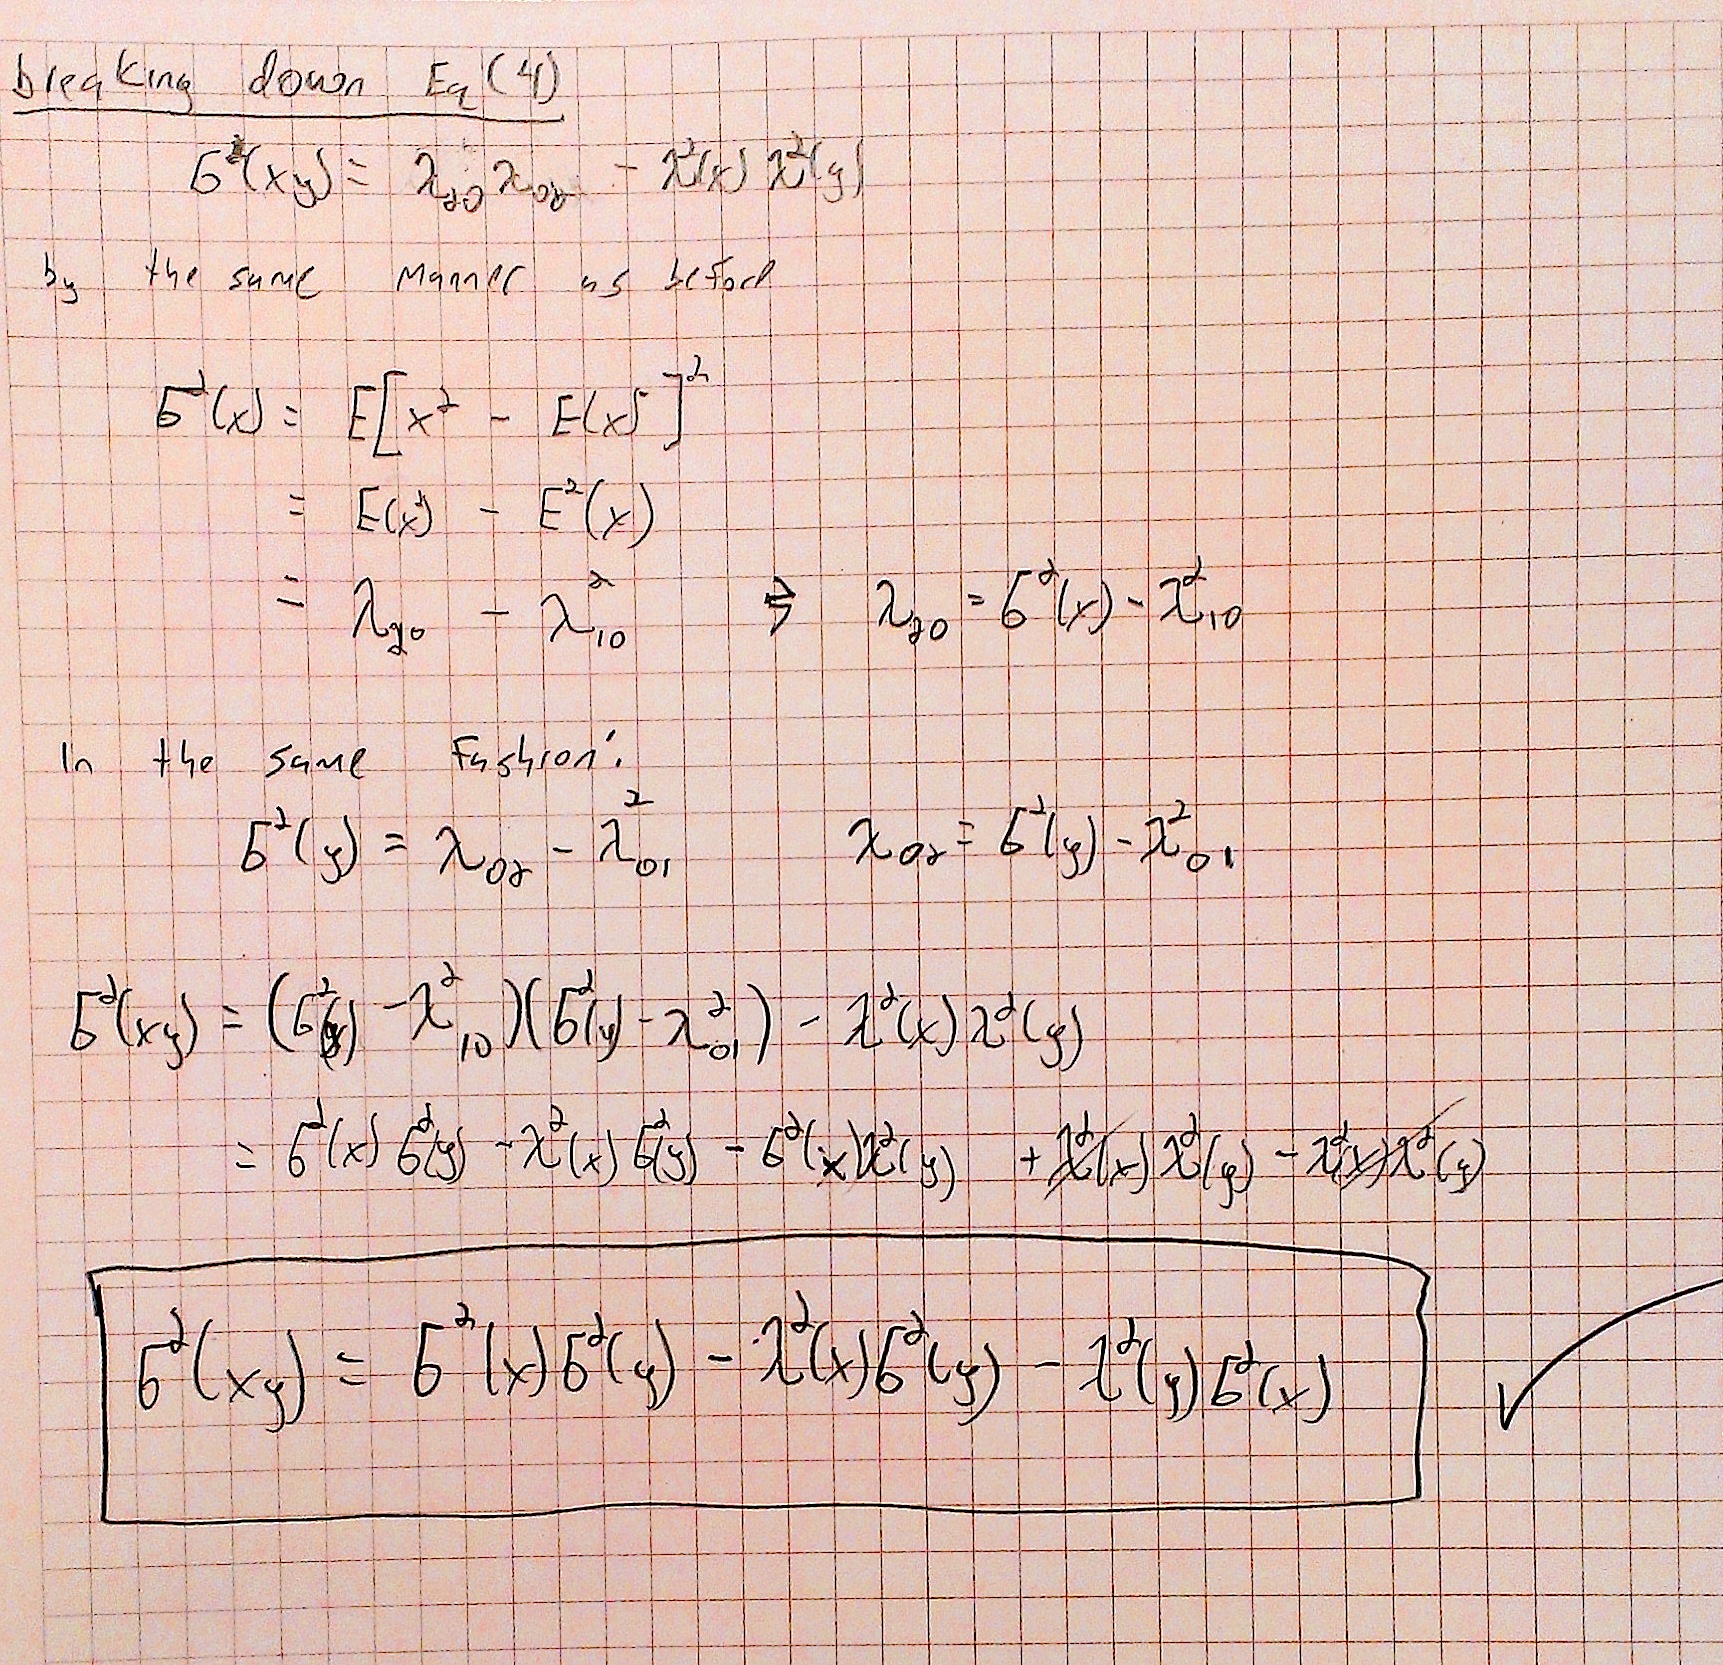 breaking down Eq (4)
σ²(xy) = λ₂₀ λ₀₂ - λ²(x) λ²(y)
by the same manner as before
σ²(x) = E[x² - E(x)]²
= E(x²) - E²(x)
= λ₂₀ - λ²₁₀ ⇒ λ₂₀ = σ²(x) - λ²₁₀
In the same fashion:
σ²(y) = λ₀₂ - λ²₀₁ λ₀₂ = σ²(y) - λ²₀₁
σ²(xy) = (σ²(x) - λ²₁₀)(σ²(y) - λ²₀₁) - λ²(x) λ²(y)
= σ²(x) σ²(y) - λ²(x) σ²(y) - σ²(x) λ²(y) + λ²(x) λ²(y) - λ²(x) λ²(y)
σ²(xy) = σ²(x) σ²(y) - λ²(x) σ²(y) - λ²(y) σ²(x) ✓